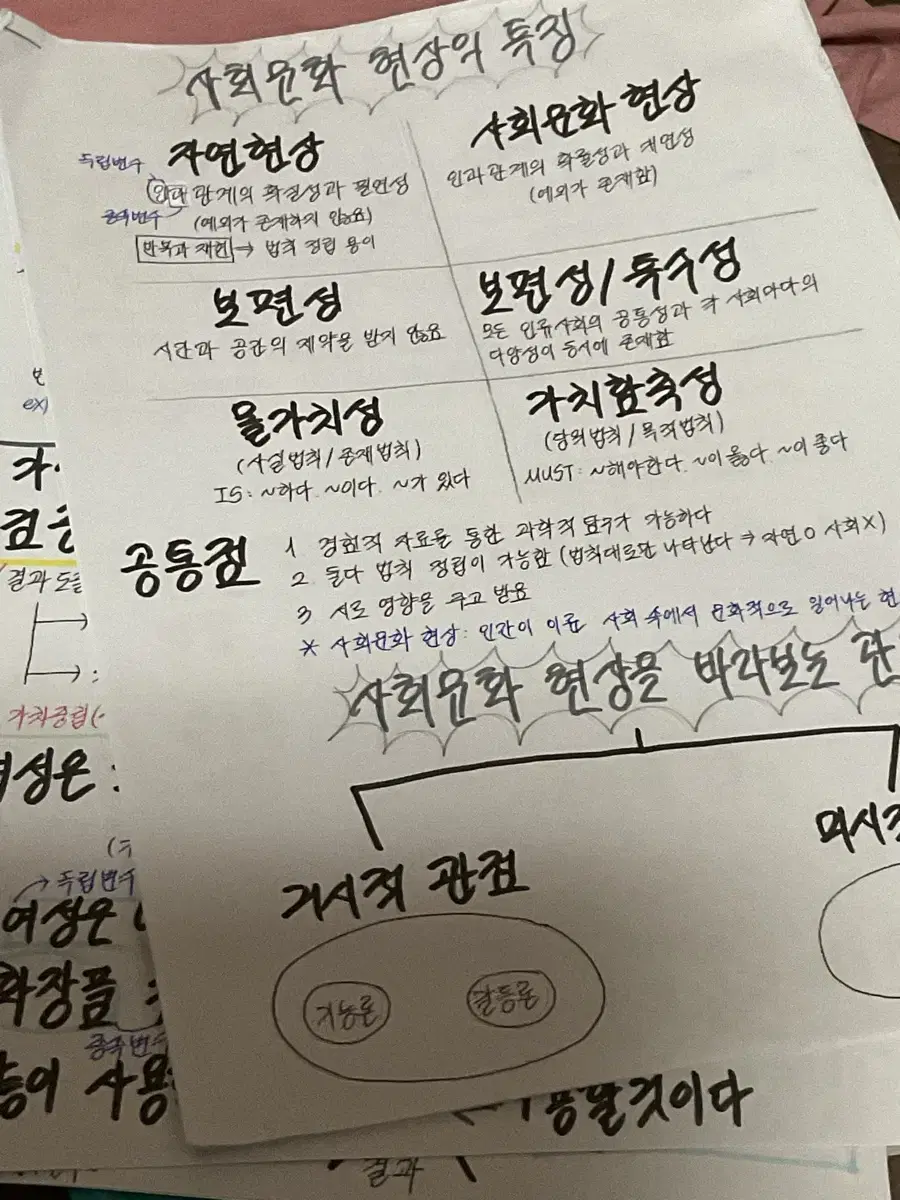 사회문화 현상의 특징
자연현상
독립변수
인과 관계의 확실성과 필연성
종속변수
(예외가 존재하지 않음)
반복과 재현 → 법칙 정립 용이
사회문화 현상
인과관계의 확률성과 개연성
(예외가 존재함)
보편성
시간과 공간의 제약을 받지 않음
보편성/특수성
모든 인류사회의 공통성과 각 사회마다의
다양성이 동시에 존재함
몰가치성
(사실법칙/존재법칙)
IS: ~하다. ~이다. ~가 있다
가치함축성
(당위법칙/목적법칙)
MUST: ~해야한다. ~이 옳다. ~이 좋다
공통점
1 경험적 자료를 통한 과학적 탐구가 가능하다
2 둘다 법칙 정립이 가능함 (법칙대로만 나타난다 ⇒ 자연O 사회X)
3 서로 영향을 주고 받음
* 사회문화 현상: 인간이 이룬 사회 속에서 문화적으로 일어나는 현
사회문화 현상을 바라보는 관
거시적 관점
미시적
기능론
갈등론
ex)
결과 도출
가치중립(
여성은 :
→ 독립변수
여성은
화장품
종속변수
등이 사용
것이다
결과